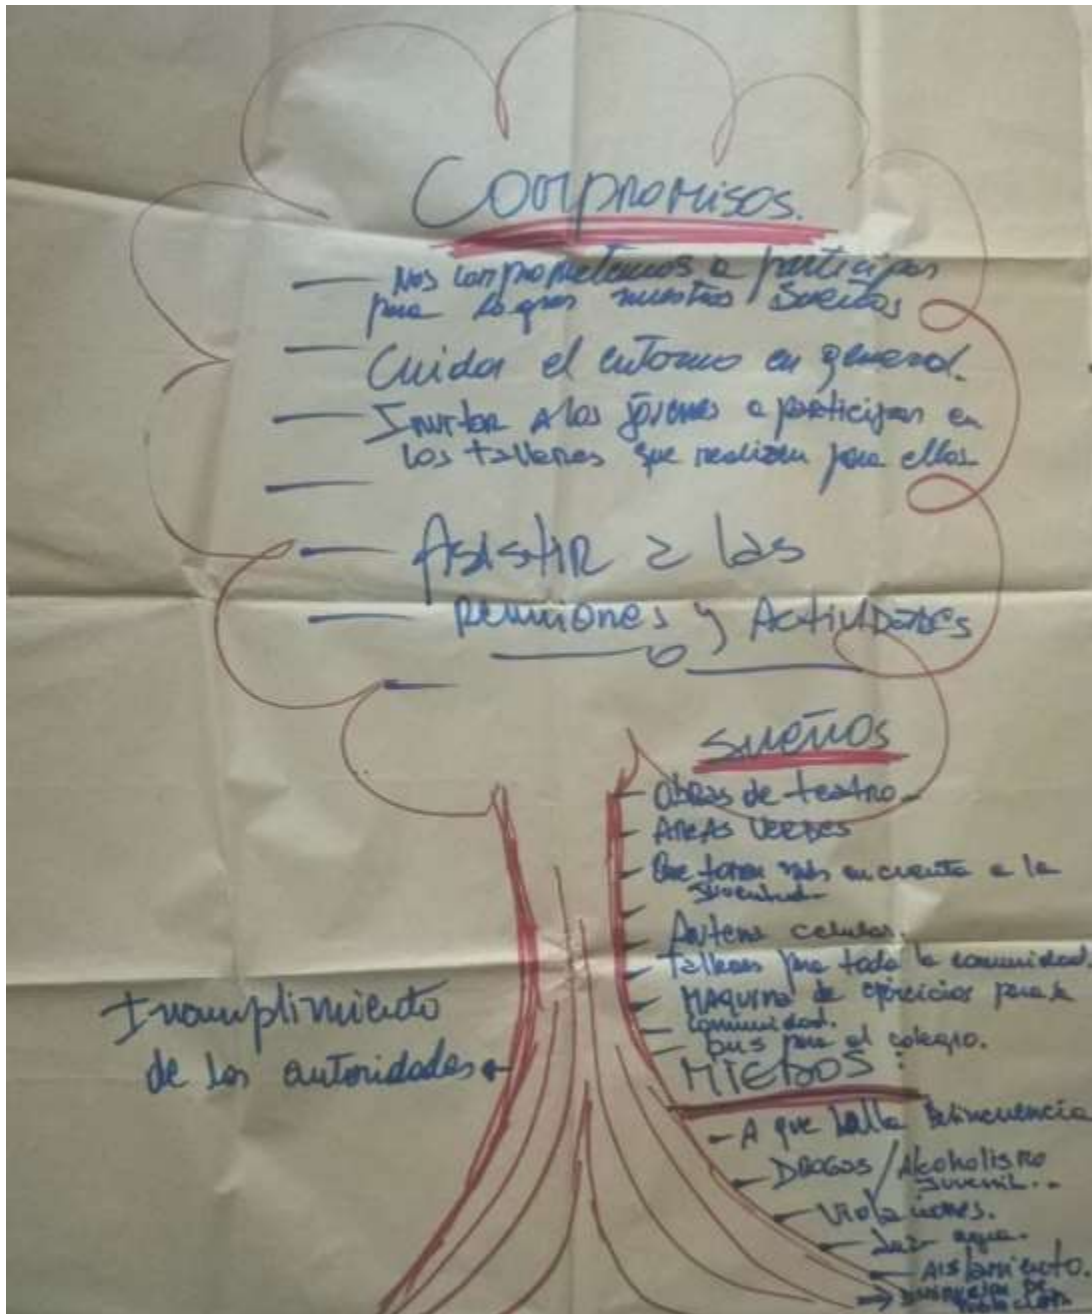 Compromisos.
— Nos comprometemos a participar
para lograr nuestros sueños
— Cuidar el entorno en general.
— Invitar A los jóvenes a participar en
los talleres que realizan para ellos
—
— Asistir a las
— Reuniones y Actividades
—
sueños
- Obras de teatro.
- AREAS VERDES
- Que tomen más en cuenta a la
juventud.
- Antena celular.
- talleres para toda la comunidad.
- MAQUINA de ejercicios para la
comunidad.
- bus para el colegio.
Incumplimiento
de las autoridades
MIEDOS:
- A que halla Delincuencia
- DROGAS / Alcoholismo
Juvenil..
- Violaciones.
- agua.
- Aislamiento.